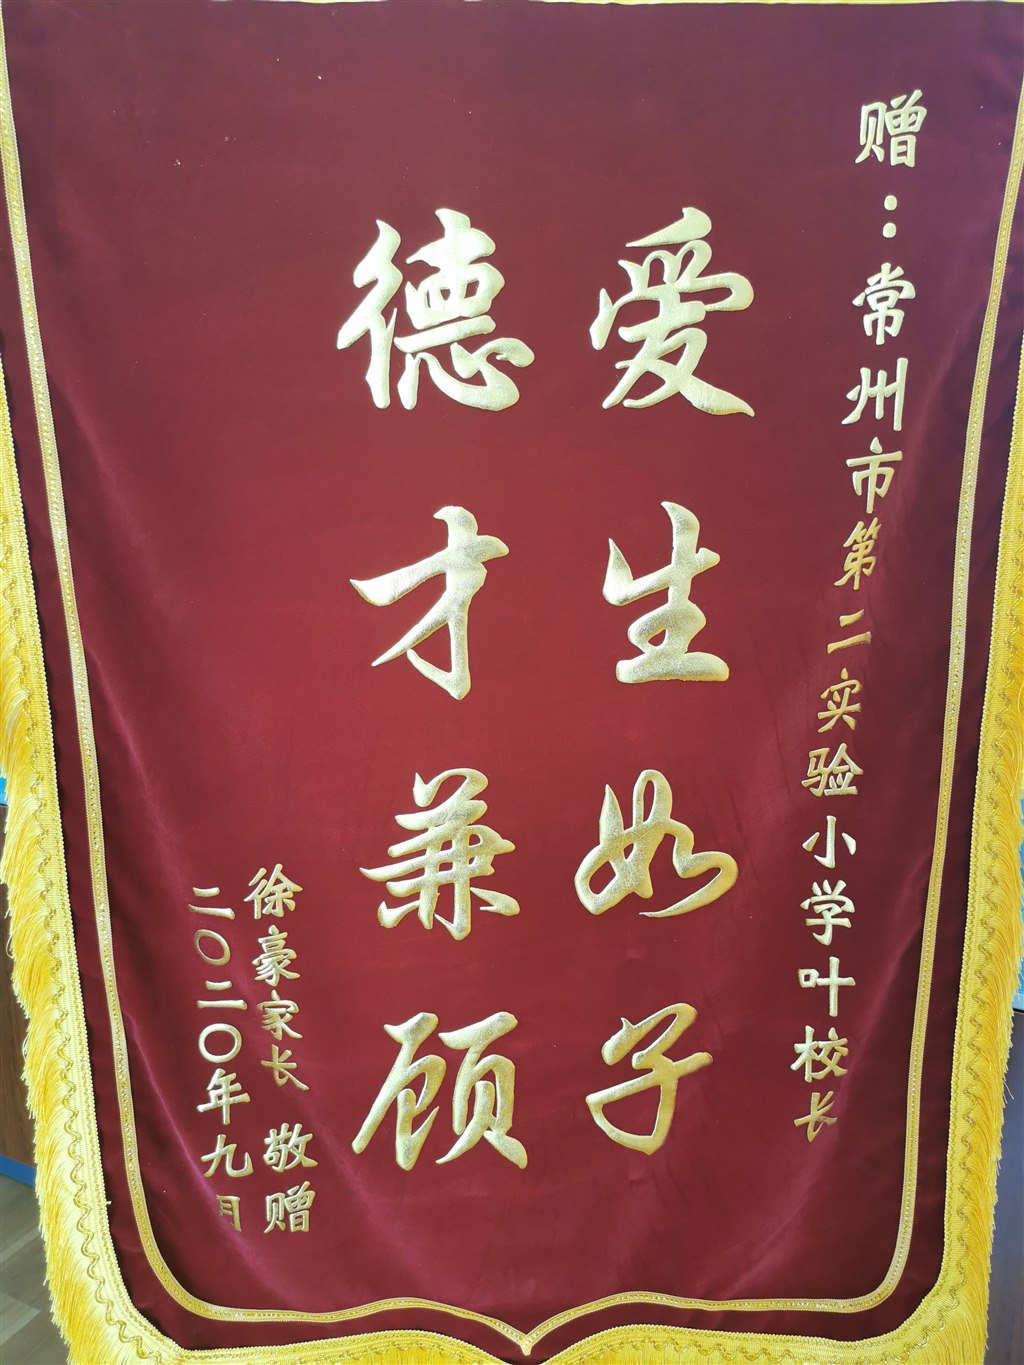 赠：常州市第二实验小学叶校长
爱生如子
德才兼顾
徐豪家长 敬赠
二〇二〇年九月